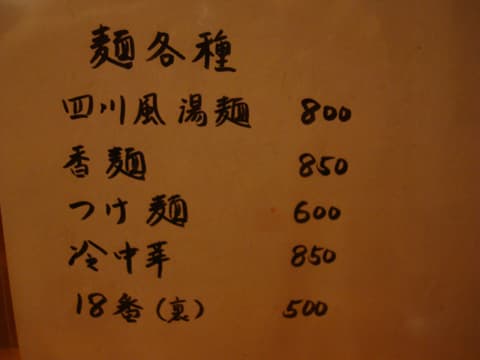 麺各種
四川風湯麺 800
香麺 850
つけ麺 600
冷中華 850
18番(裏) 500